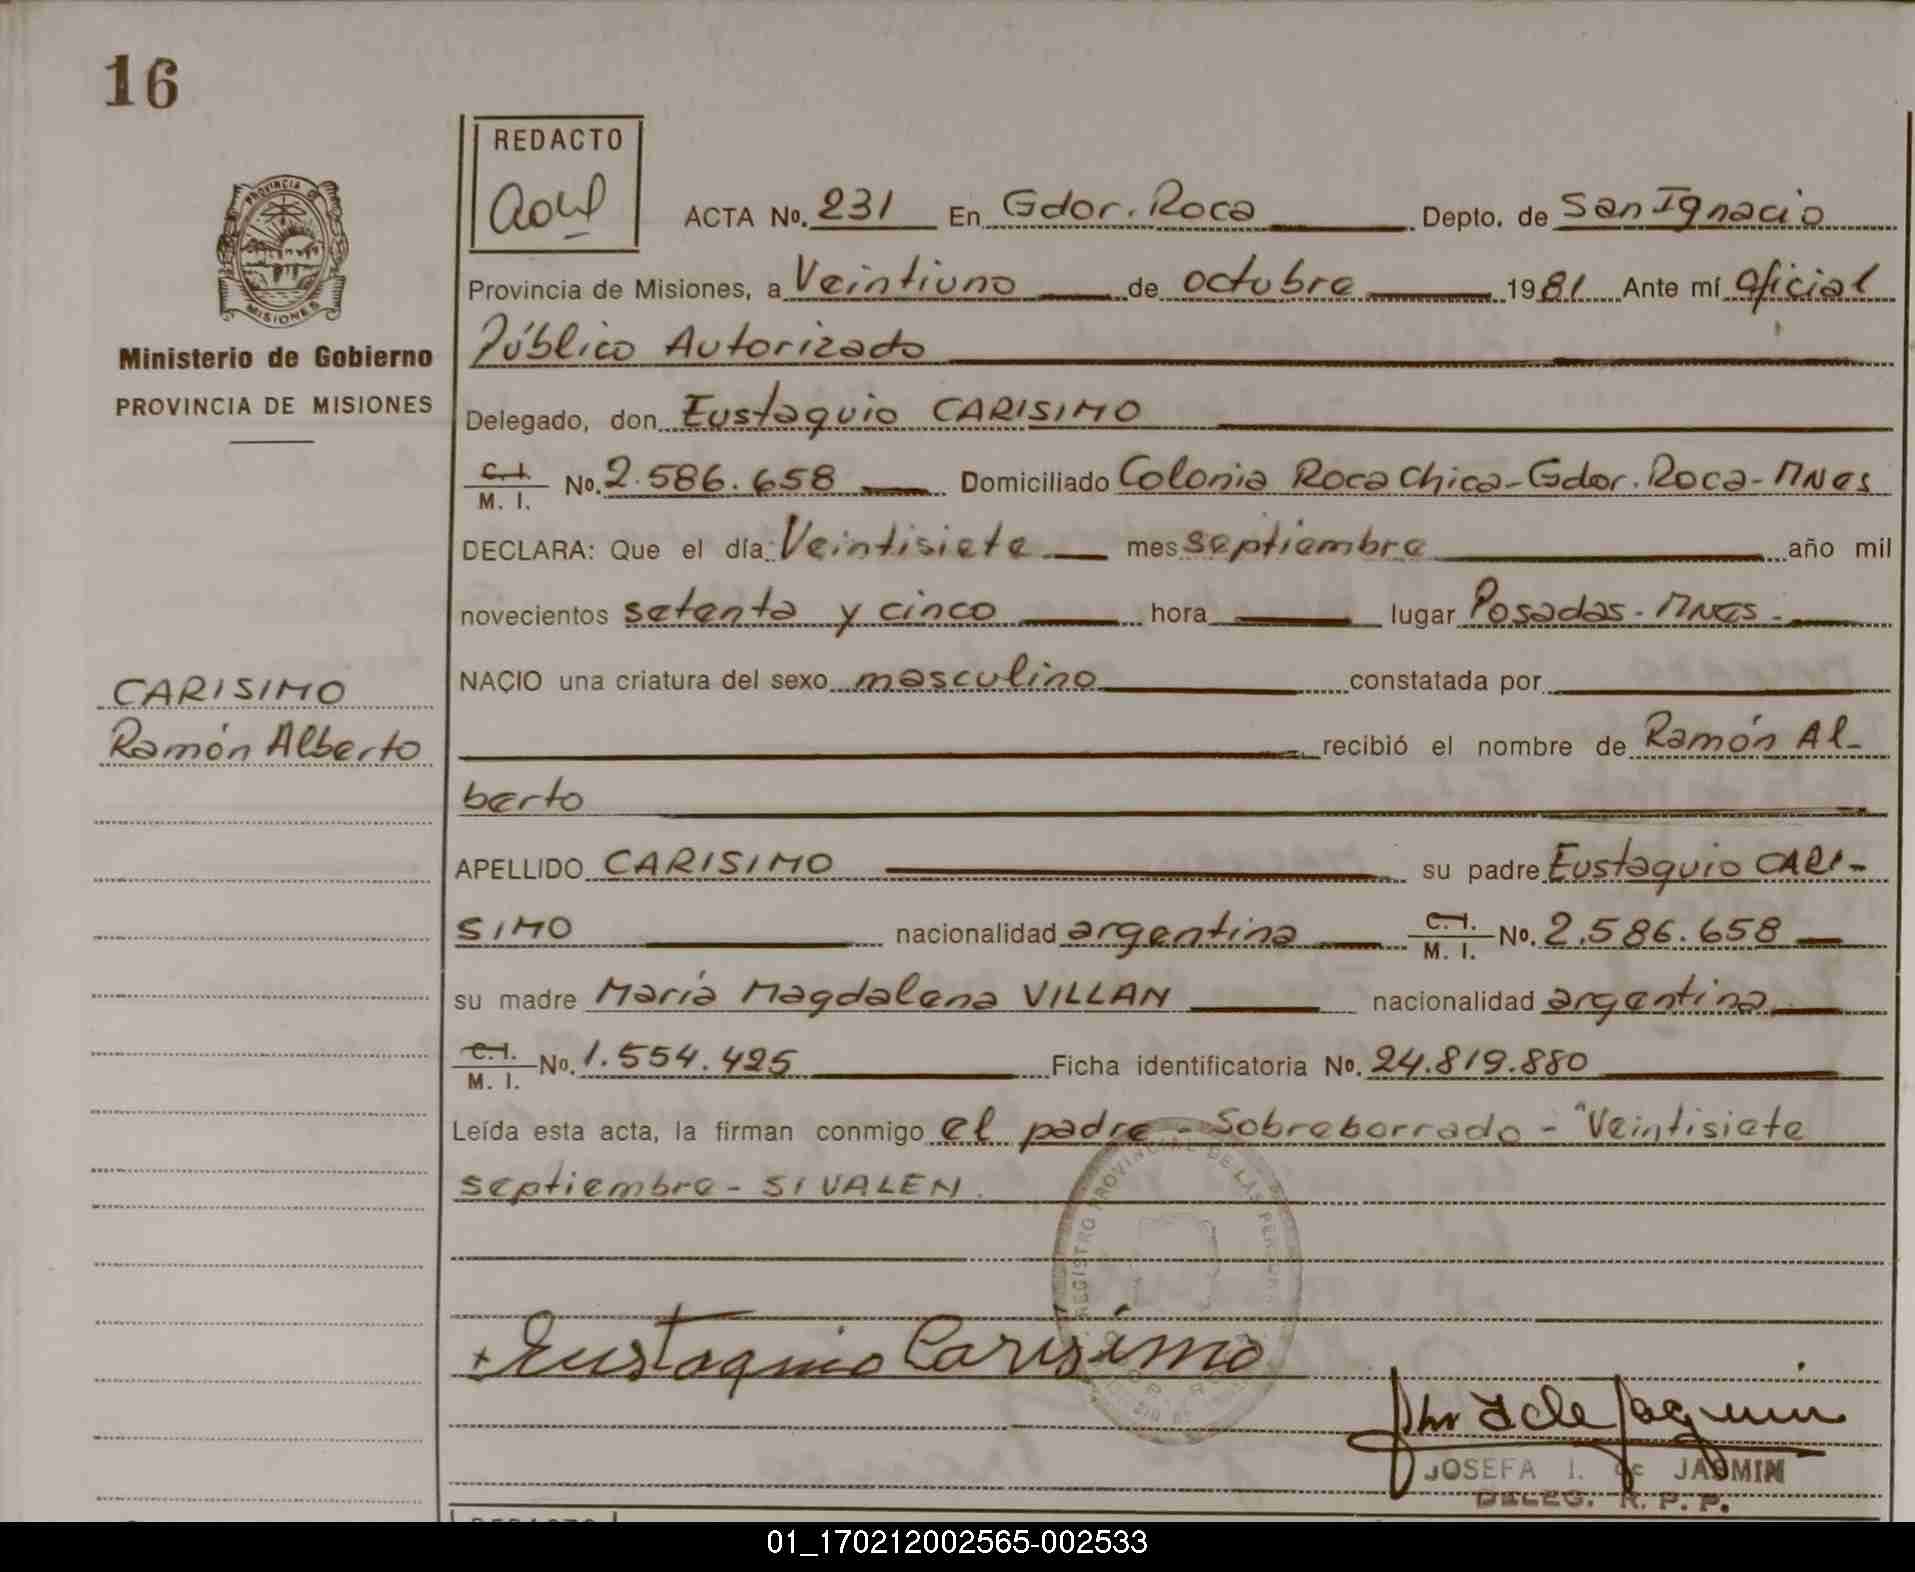 16
REDACTO
PROVINCIA D
MISIONES
Ministerio de Gobierno
PROVINCIA DE MISIONES
CARISIMO
Ramón Alberto
ACTA No. 231 En Gdor. Roca Depto. de San Ignacio
Provincia de Misiones, a Veintiuno de octubre 1981 Ante mí Oficial
Público Autorizado
Delegado, don Eustaquio CARISIMO
C. I. / M. I. No. 2.586.658 Domiciliado Colonia Roca Chica-Gdor. Roca-Mnes
DECLARA: Que el día Veintisiete mes septiembre año mil
novecientos setenta y cinco hora lugar Posadas - Mnes -
NACIO una criatura del sexo masculino constatada por
recibió el nombre de Ramón Al-
berto
APELLIDO CARISIMO su padre Eustaquio CARI-
SIMO nacionalidad argentina C. I. / M. I. No. 2.586.658
su madre María Magdalena VILLAN nacionalidad argentina
C. I. / M. I. No. 1.554.425 Ficha identificatoria No. 24.819.880
Leída esta acta, la firman conmigo el padre - Sobreborrado - "Veintisiete
septiembre - SI VALEN.
REGISTRO PROVINCIAL DE LAS PER
+ Eustaquio Carisimo
JOSEFA I. de JASMIN
DELEG. R. P. P.
01_170212002565-002533